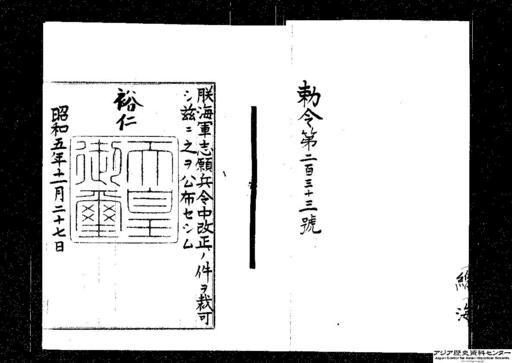 勅令第二百三十三號
朕海軍志願兵令中改正ノ件ヲ裁可
シ茲ニ之ヲ公布セシム
裕仁
天皇
御璽
昭和五年十一月二十七日
アジア歴史資料センター
Japan Center for Asian Historical Records